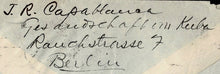 J. R. Capablanca
Gesandschaft im Kuba
Rauchstrasse 7
Berlin